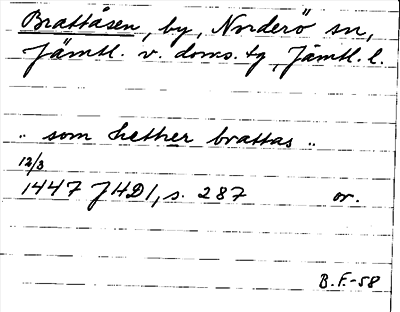 Brattåsen, by, Norderö sn,
Jämtl. v. doms. tg, Jämtl. l.
" som hether brattas "
12/3
1447 JHD1, s. 287 or.
B.F.-58